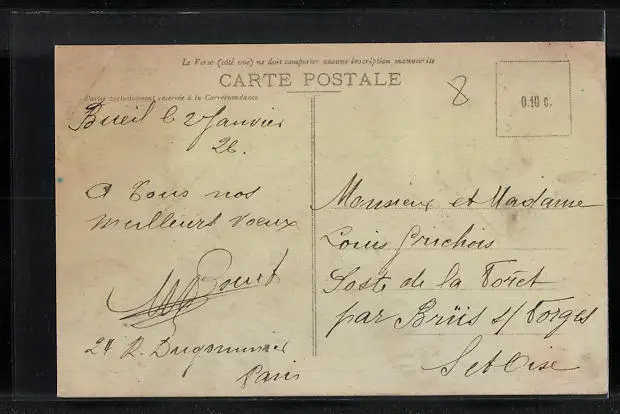 Le Verso (côté vue) ne doit comporter aucune inscription manuscrite
CARTE POSTALE
Partie exclusivement réservée à la Correspondance
8
0.10 c.
Bueil le 2 Janvier
26.
A Tous nos
meilleurs voeux
24 R. Dugommier
Paris
Monsieur et Madame
Louis
Poste de la Foret
par Briis s/ Forges
S et Oise